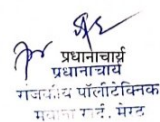 प्रधानाचार्य
प्रधानाचार्य
राजकीय पॉलीटेक्निक
मवाना खुर्द, मेरठ